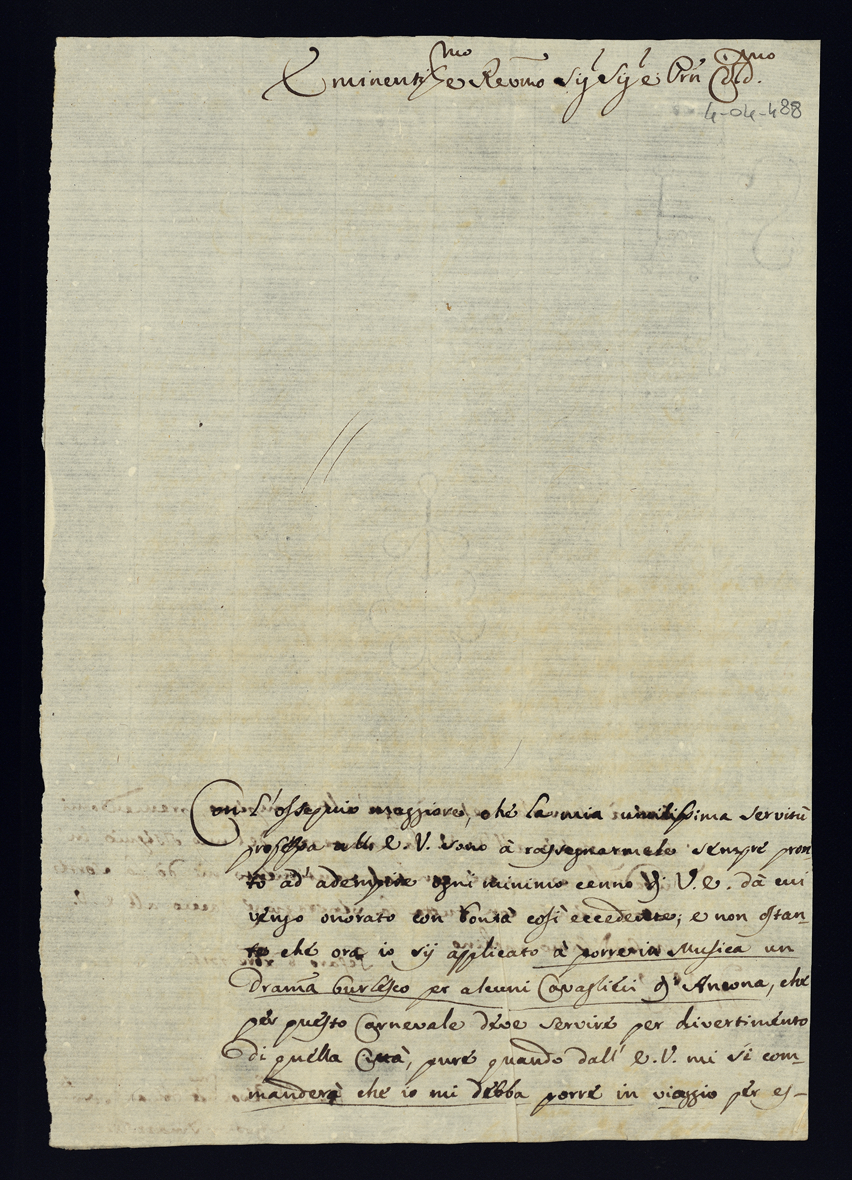 Eminentis.mo e Reu.mo Sig.r Sig.r e Prñ Col.mo
4-04-488
Con l'ossequio maggiore, che la mia umilissima servitù
professa all' E. V. sono à rassegnarmele sempre pron-
to ad' adempire ogni minimo cenno di V. E. dà cui
vengo onorato con bontà così eccedente; e non ostan-
te che ora io sij applicato à porre in Musica un
Drama burlesco per alcuni Cavaglieri d'Ancona, che
per questo Carnevale deve servire per divertimento
di quella Città, pure quando dall' E. V. mi si com-
manderà che io mi debba porre in viaggio per es-